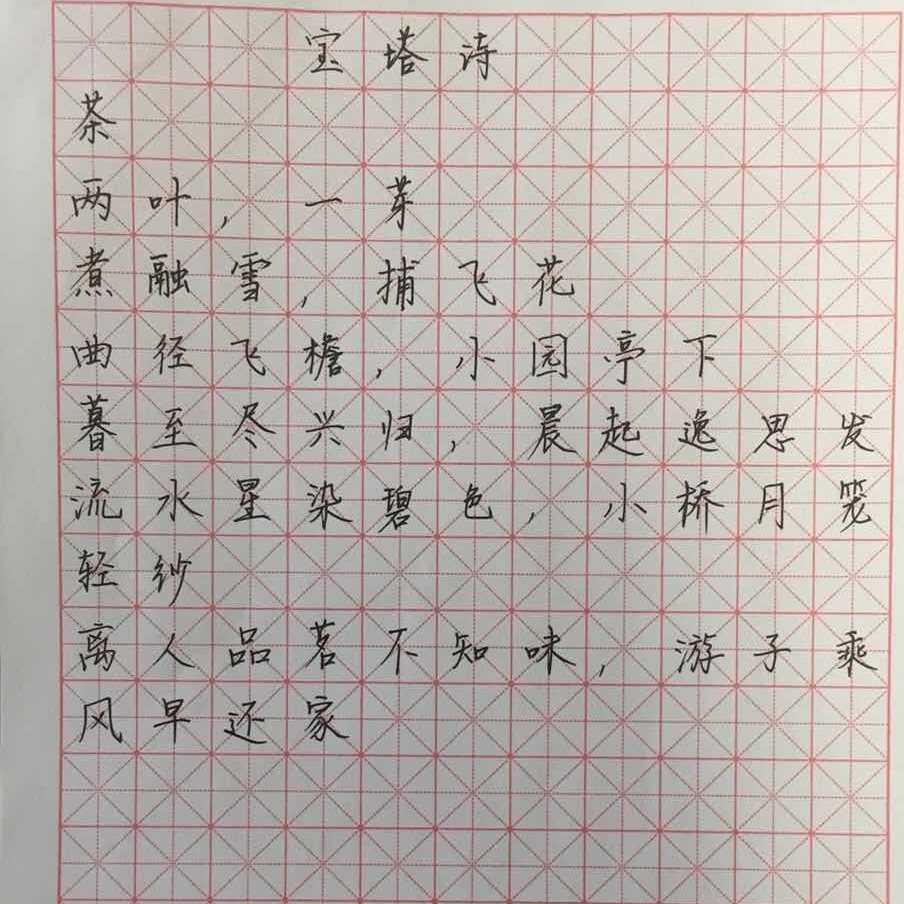 宝塔诗
茶
两叶，一芽
煮融雪，捕飞花
曲径飞檐，小园亭下
暮至尽兴归，晨起逸思发
流水星染碧色，小桥月笼
轻纱
离人品茗不知味，游子乘
风早还家